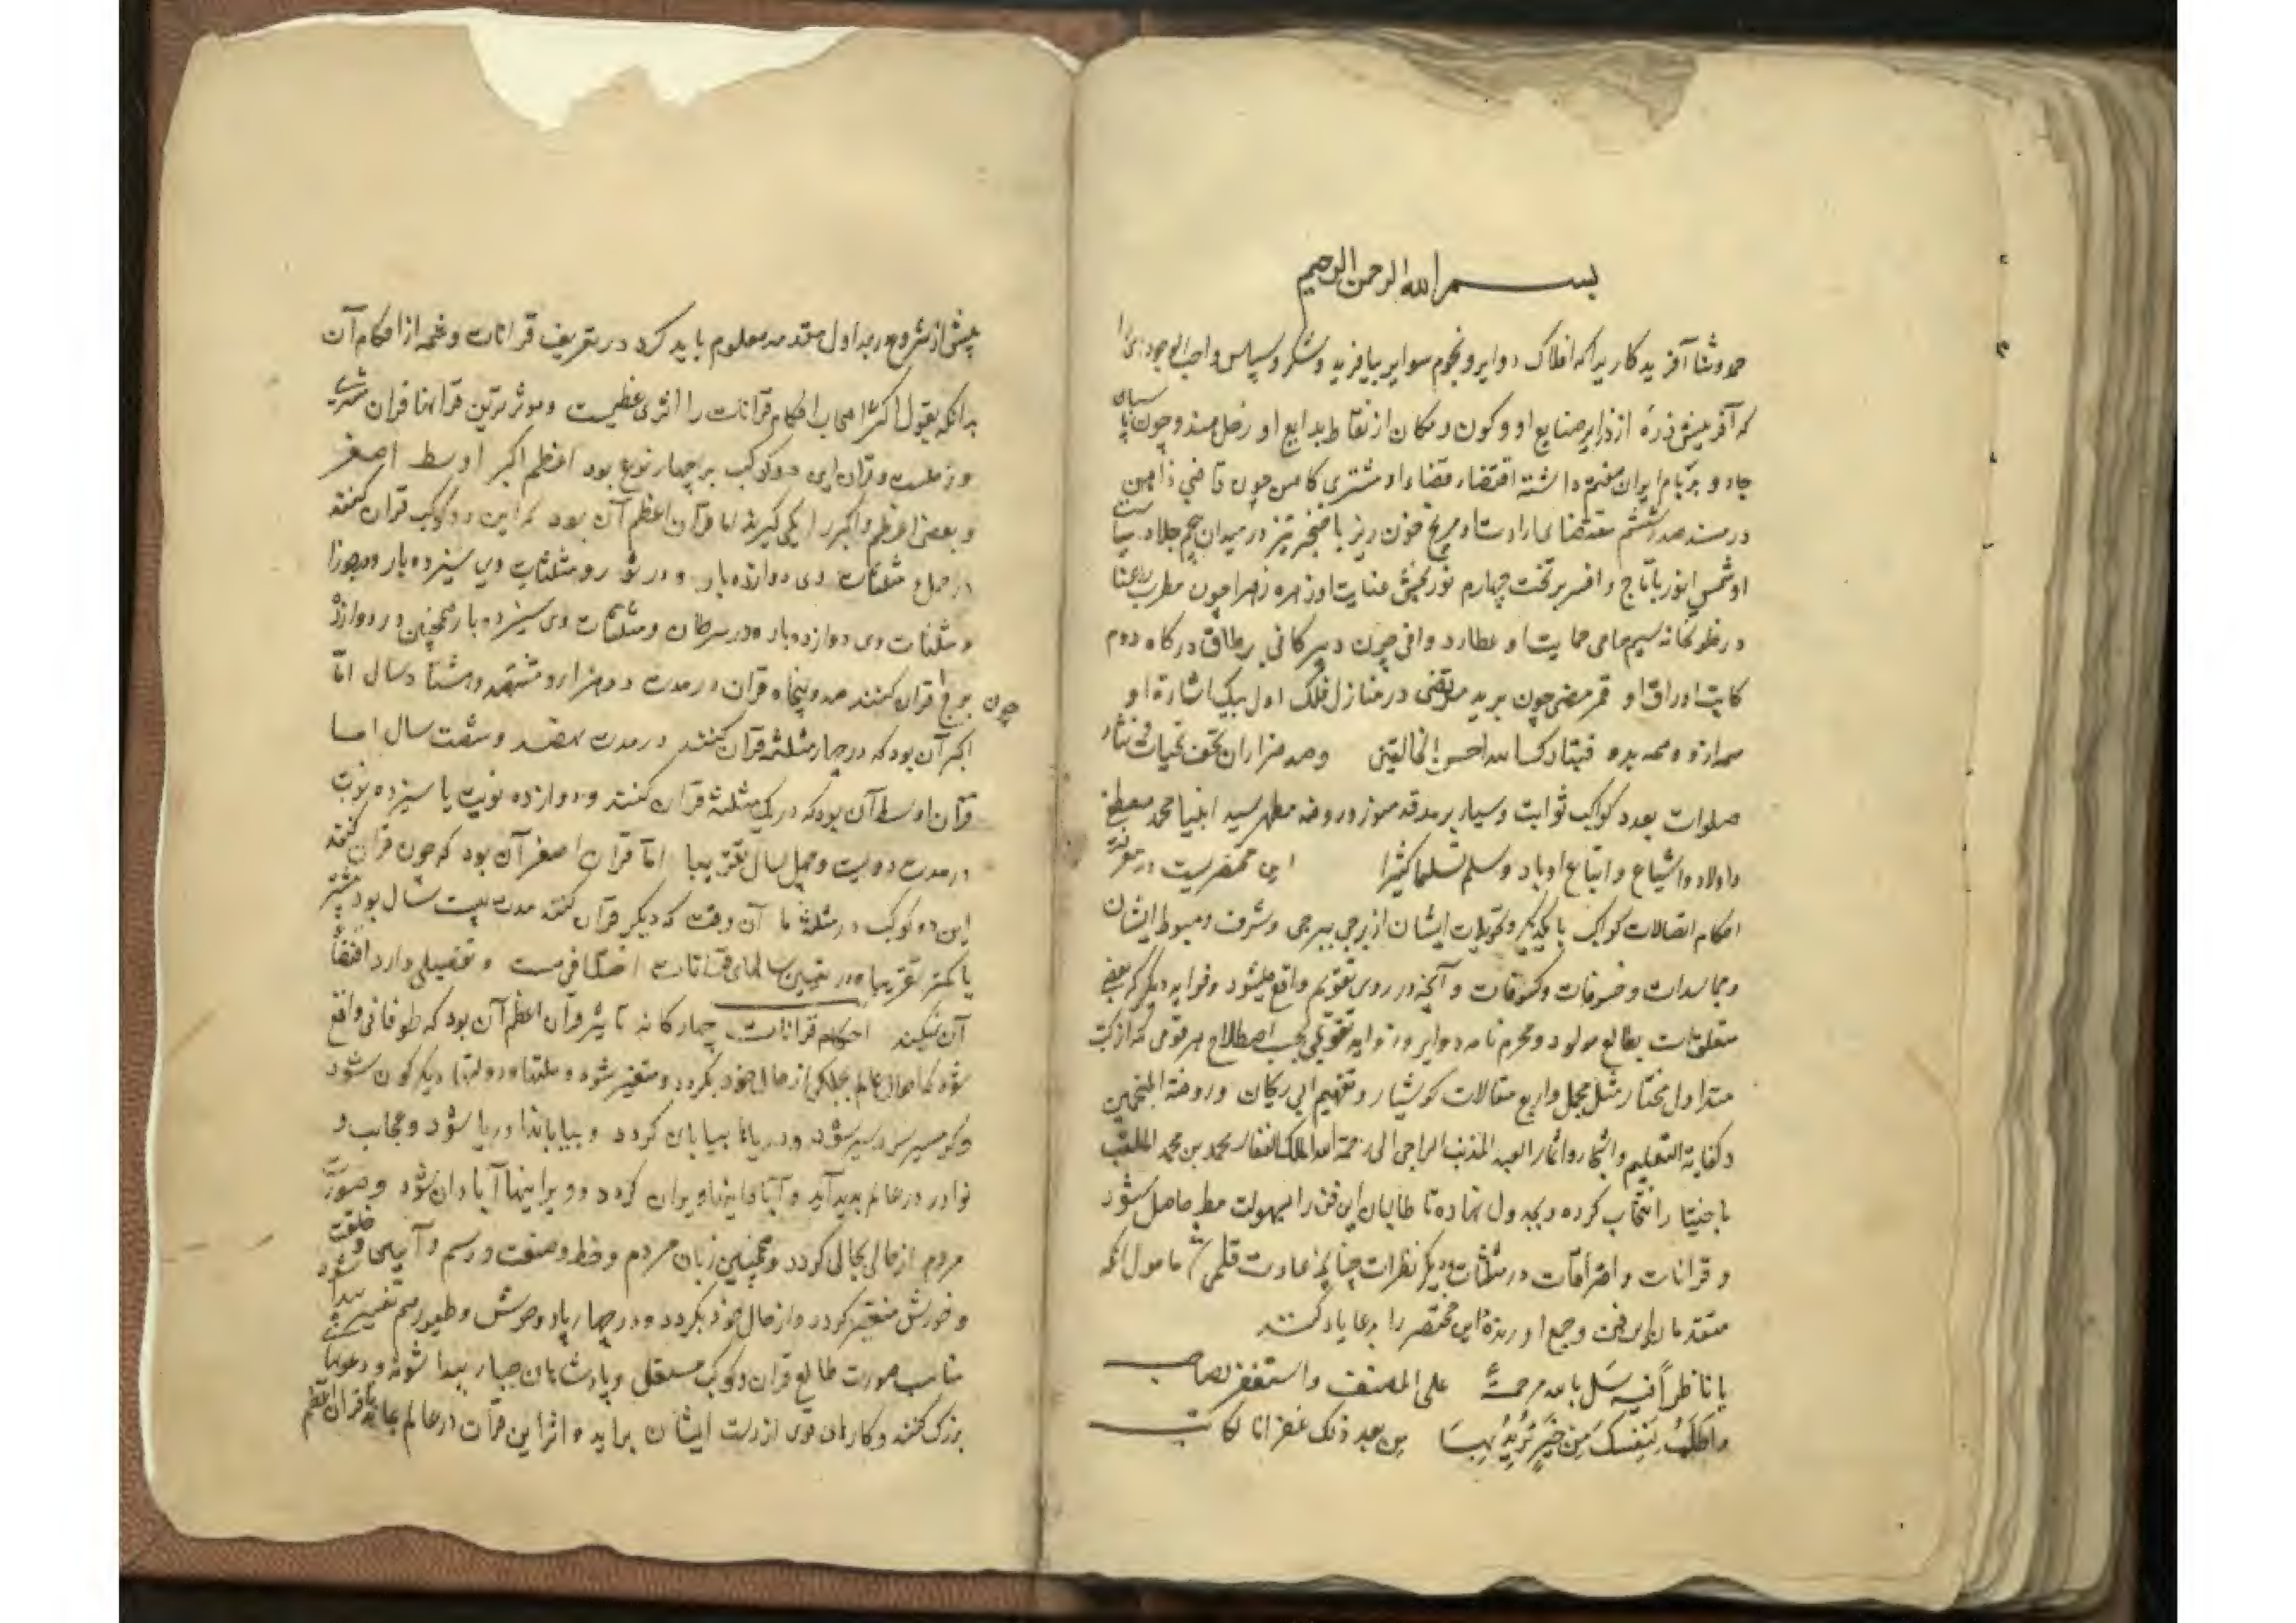 بسم الله الرحمن الرحيم
حمد و ثنا آفریدکاریرا که افلاک دوایر و نجوم سوایر بیافرید و شکر و سپاس واجب الوجودی را
که آفرینش ذره از ذرایر صنایع او و کون و مکان از نقاط بدایع او زحل هندو چون
جاه و بر بام ایوان هفتم داشته اقتضاء قضاء او مشتری کامن چون قاضی
در مسند صدر ششم مقتضای ارادت او مریخ خون ریز با خنجر تیز در میدان پنجم جلاد سیاست
او شمس انور با تاج و افسر بر تخت چهارم نور بخش عنایت او زهره زهرا چون مطرب رعنا
در طربخانه سیم حامی حمایت او عطارد وافی چون دبیر کافی بر طاق درکاه دوم
کاتب اوراق او قمر مضی چون برید مرتضی در منازل فلک اول بیک اشارة او
همه ازو و همه بدو فتبارک الله احسن الخالقین وصد هزاران تحف تحیات و نثار
صلوات بعدد کواکب ثوابت و سیار بر مرقد منور و روضه مطهر سید انبیا محمد مصطفی
و اولاد و اشیاع و اتباع او باد و سلم تسلیما کثیرا این مختصریست در معرفت
احکام اتصالات کواکب با یکدیگر و تحویلات ایشان از برجی ببرجی و شرف و هبوط ایشان
و مجاسدات و خسوفات و کسوفات و آنچه در روی تقویم واقع میشود و فواید دیگر که بعضی
متعلق است بطالع مولود و محرم نامه دوایر و زواید تقویمی بحسب اصطلاح هر قومی که از کتب
متداول مختار مثل مجمل و اربع مقالات کوشیار و تفهیم ابی ریحان و روضة المنجمین
و کفایة التعلیم و اشجار و اثمار العبد المذنب الراجی الی رحمة الله الملک الغفار محمد بن محمد الملقب
را انتخاب کرده و بجدول نهاده تا طالبان این فن را بسهولت مطلوب حاصل شود
و قرانات و احتراقات در مثلثات و دیگر نظرات چنانچه عادت قلمی مامول انکه
متقدمان این فن وجمع آورنده این مختصر را بدعا یاد کنند
یا ناظرا فیه سل بالله مرحمة علی المصنف واستغفر لصاحب
واطلب لنفسک من خیر ترید بها من بعد ذلک غفرانا لکاتب
پیش از شروع در جداول مقدمه معلوم باید کرد در تعریف قرانات و شمه از احکام آن
بدانکه بقول اکثر اصحاب احکام قرانات را اثری عظیمست و موثرترین قرانها قران مشتری
و زحلست و قران این دو کوکب بر چهار نوع بود اعظم اکبر اوسط اصغر
و بعضی اعظم و اکبر را یکی گیرند اما قران اعظم آن بود که این دو کوکب قران کنند
در حمل و مثلثات وی دوازده بار و در ثور و مثلثات وی سیزده بار و در جوزا
و مثلثات وی دوازده بار و در سرطان و مثلثات وی سیزده بار همچنین در دوازده
چون برج قران کنند صد و پنجاه قران در مدت دو هزار و هشتصد و هشتاد سال اما
اکبر آن بود که در چهار مثلثه قران کنند در مدت نهصد و شصت سال اما
قران اوسط آن بود که در یک مثلثه قران کنند دوازده نوبت یا سیزده نوبت
در مدت دویست و چهل سال تقریبا اما قران اصغر آن بود که چون قران کنند
این دو کوکب در مثلثه ما آن وقت که دیگر قران کنند مدت بیست سال بود بیشتر
یا کمتر تقریبا و در تعیین سالهای قرانات اختلافی هست و تفصیلی دارد اقتضاء
آن نمیکند احکام قرانات چهارکانه تاثیر قران اعظم آن بود که طوفانی واقع
شود که احوال عالم بکلی از حال خود بگردد و متغیر شود و ملتها و دولتها دیگرکون شود
و گرمسیر سردسیر شود و دریاها بیابان گردد و بیابانها دریا شود و عجایب و
نوادر در عالم پدید آید و آبادانیها ویران گردد و ویرانیها آبادان شود و صورت
مردم از حالی بحالی گردد و همچنین زبان مردم و خط و صنعت و رسم و آیین و خلقت
و خورش متغیر گردد و از حال خود بگردد و در چهارپا و وحوش و طیور هم تغییر پیدا شود
مناسب صورت طالع قران و کوکب مستعلی و پادشاهان جبار پیدا شوند و دعویهای
بزرگ کنند و کارهای قوی از دست ایشان براید و اثر این قران در عالم بماند تا قران اعظم